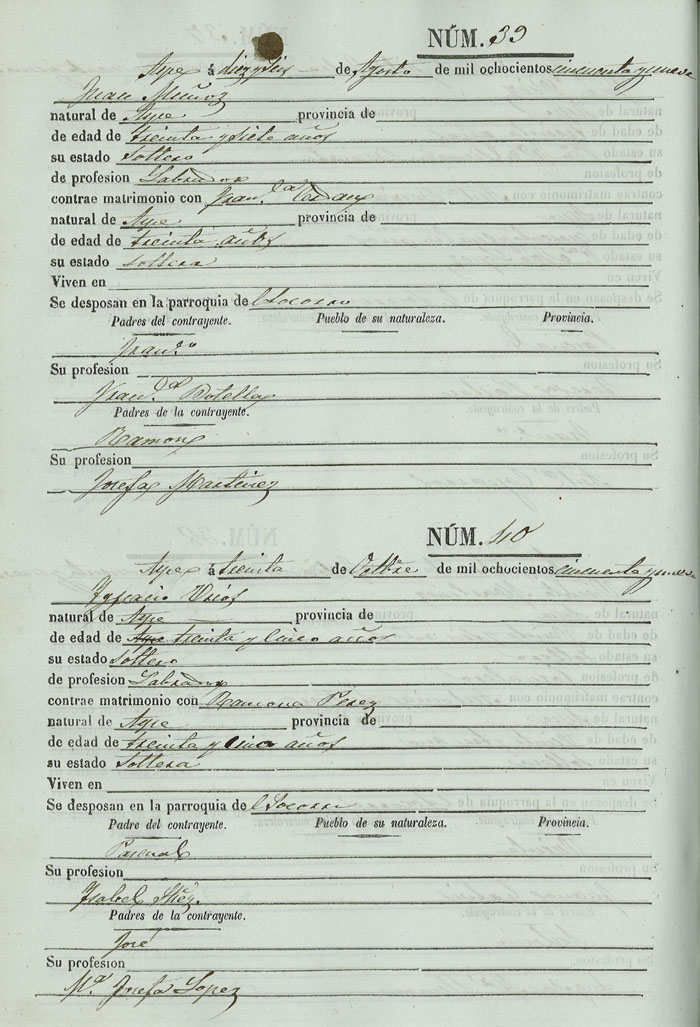 NÚM. 39
Aspe á diez y seis de Agosto de mil ochocientos cincuenta y nueve
Juan Muñoz
natural de Aspe provincia de
de edad de treinta y siete años
su estado Soltero
de profesion Labrador
contrae matrimonio con Fran.ca
natural de Aspe provincia de
de edad de treinta años
su estado soltera
Viven en
Se desposan en la parroquia de l Socorro
Padres del contrayente. Pueblo de su naturaleza. Provincia.
Fran.co
Su profesion
Fran.ca Botella
Padres de la contrayente.
Ramon
Su profesion
Josefa Martinez
NÚM. 40
Aspe á treinta de Octbre de mil ochocientos cincuenta y nueve
Ygnacio
natural de Aspe provincia de
de edad de Aspe treinta y cinco años
su estado Soltero
de profesion Labrador
contrae matrimonio con Ramona Perez
natural de Aspe provincia de
de edad de treinta y cinco años
su estado Soltera
Viven en
Se desposan en la parroquia de l Socorro
Padre del contrayente. Pueblo de su naturaleza. Provincia.
Pascual
Su profesion
Ysabel
Padres de la contrayente.
José
Su profesion
M.a Josefa Lopez